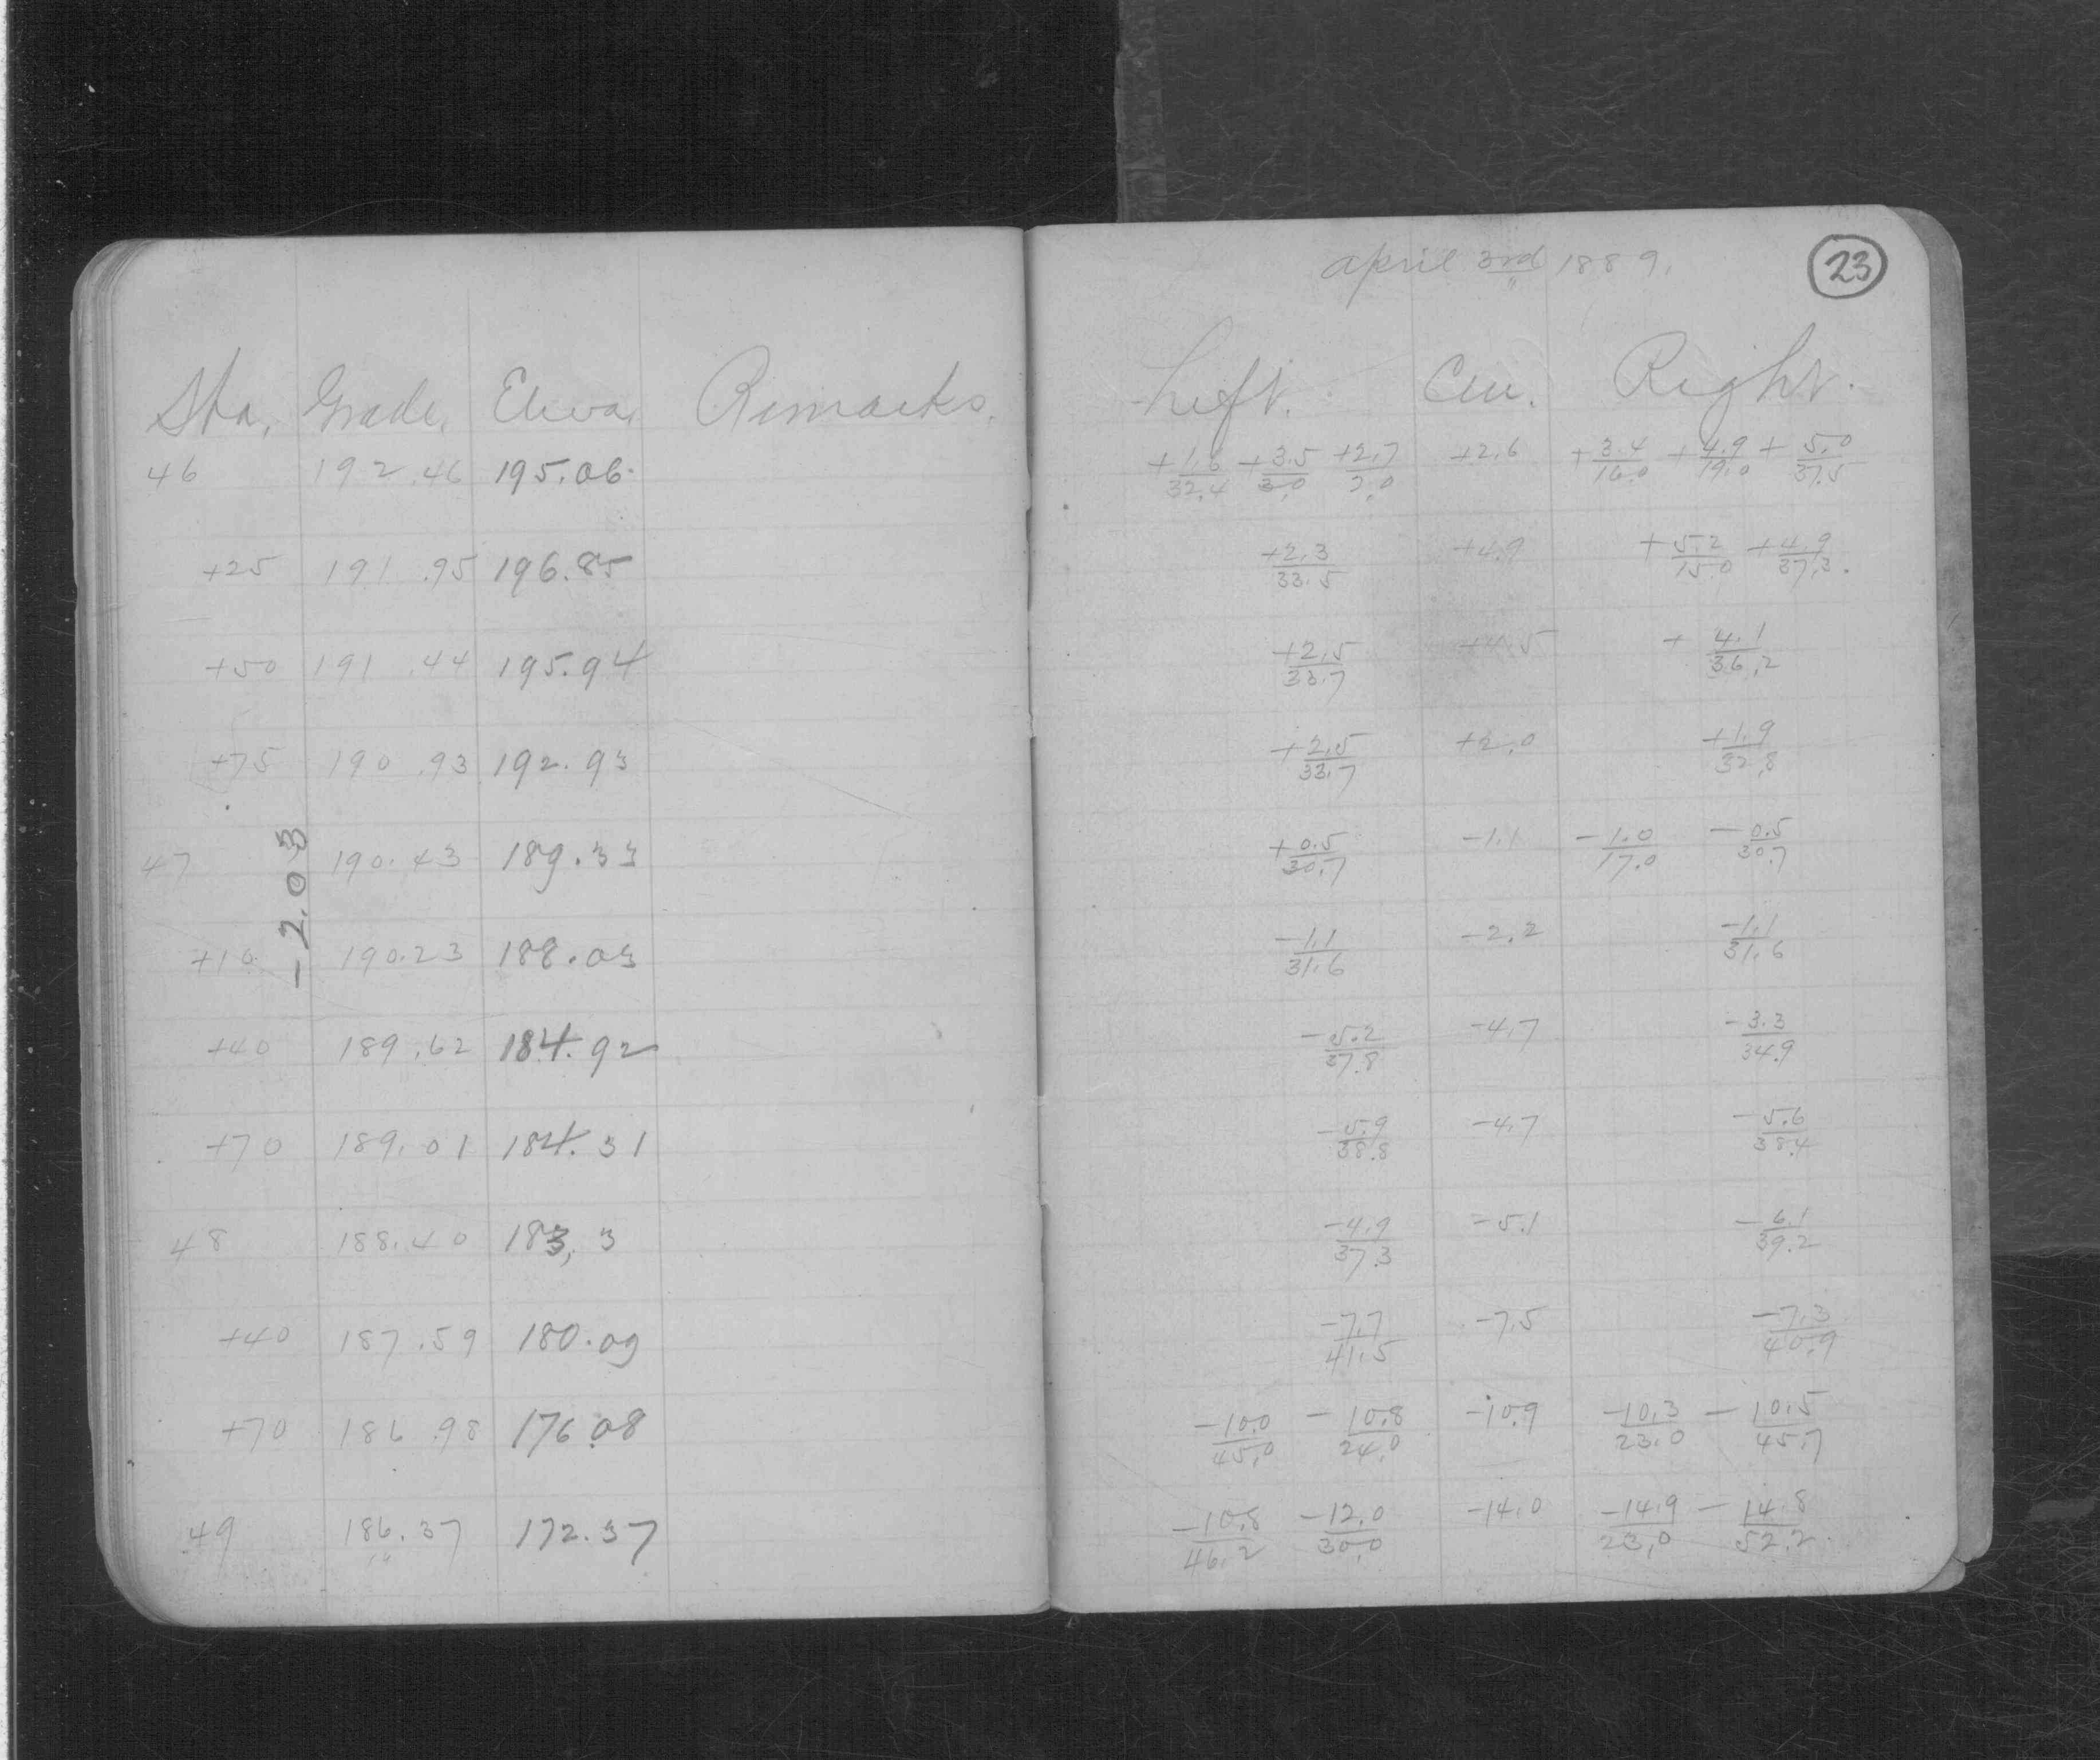 april 3rd 1889.
23
Sta. Grade. Eleva. Remarks.
Left. Cen. Right.
46 192.46 195.06 +1.6/32.4 +3.5/3.0 +2.7/2.0 +2.6 +3.4/16.0 +4.9/19.0 +5.0/37.5
+25 191.95 196.85 +2.3/33.5 +4.9 +5.2/15.0 +4.9/37.3
+50 191.44 195.94 +2.5/33.7 +4.5 +4.1/36.2
+75 190.93 192.93 +2.5/33.7 +2.0 +1.9/32.8
-2.03
47 190.43 189.33 +0.5/30.7 -1.1 -1.0/17.0 -0.5/30.7
+10 190.23 188.03 -1.1/31.6 -2.2 -1.1/31.6
+40 189.62 184.92 -5.2/37.8 -4.7 -3.3/34.9
+70 189.01 184.31 -5.9/38.8 -4.7 -5.6/38.4
48 188.40 183.3 -4.9/37.3 -5.1 -6.1/39.2
+40 187.59 180.09 -7.7/41.5 -7.5 -7.3/40.9
+70 186.98 176.08 -10.0/45.0 -10.8/24.0 -10.9 -10.3/23.0 -10.5/45.7
49 186.37 172.37 -10.8/46.2 -12.0/30.0 -14.0 -14.9/23.0 -14.8/52.2